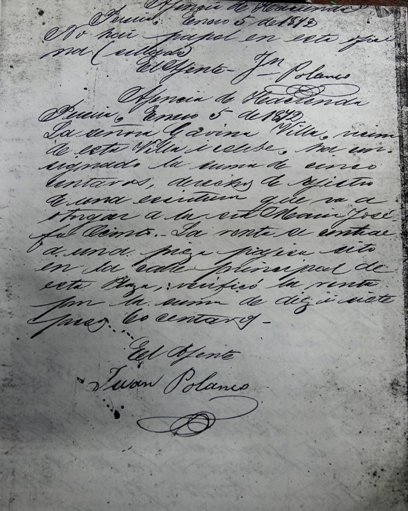 Agencia de Hacienda
Enero 5 de 1892
No hai papel en esta ofi
na (
El Ajente - Jn
Polanco
Agencia de Hacienda
Enero 5 de 1892
La señora Villa, vecina
de esta Villa i célebe, ha con
signado la suma de cinco
centavos, derechos de rejistro
de una escritura que va a
otorgar a la srta María José
fa La venta se contrae
a una pieza sita
en la calle principal de
esta Plaza, verificó la venta
por la suma de diez i siete
pesos 60 centavos -
El Ajente
Juan Polanco